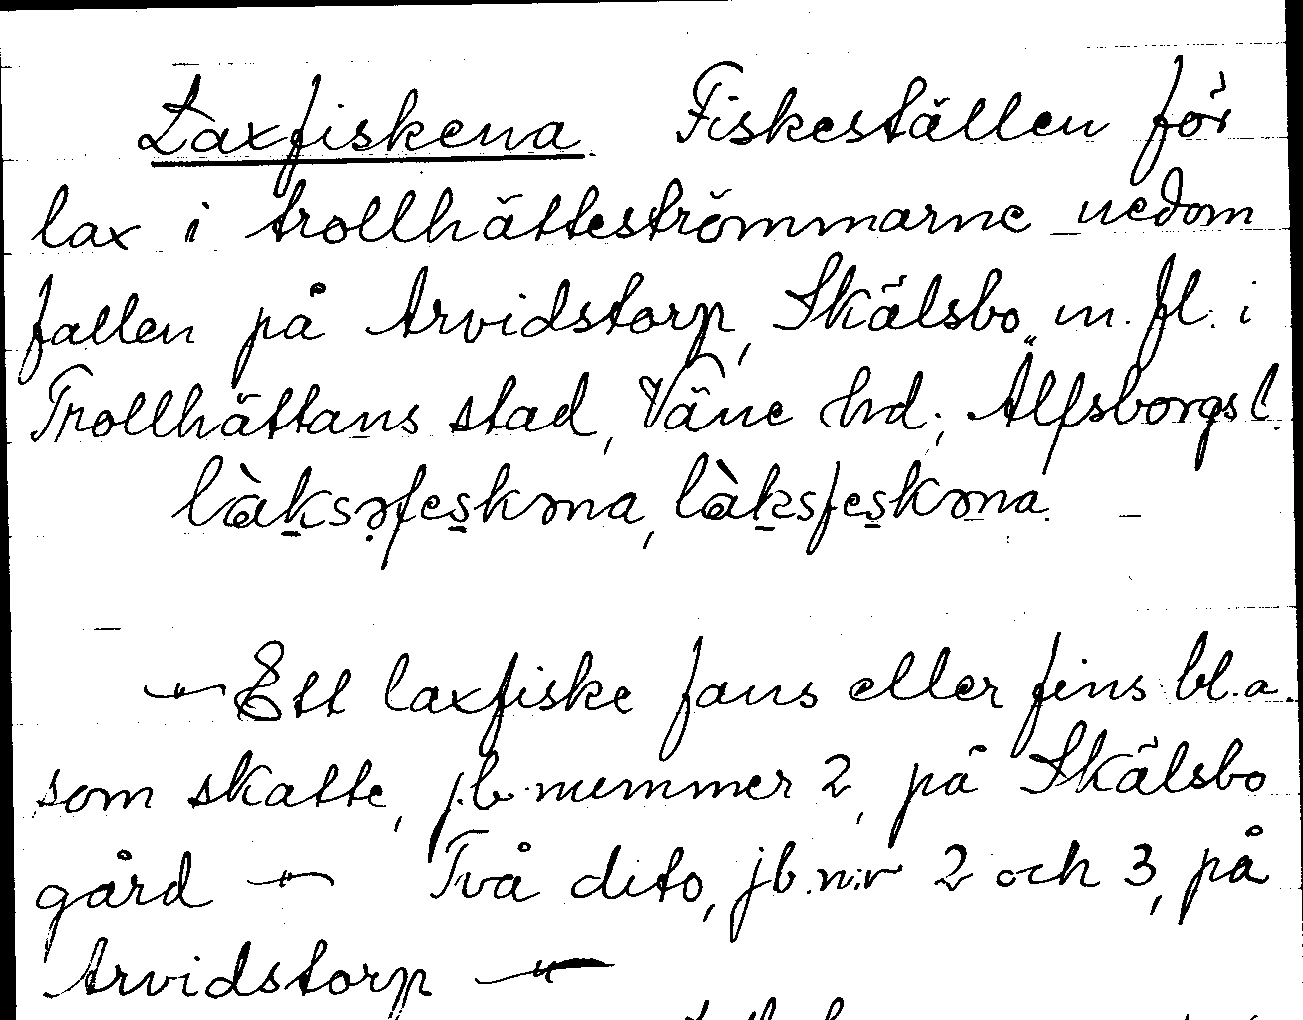 Laxfiskena. Fiskeställen för
lax i trollhätteströmmarne nedom
fallen på Arvidstorp, Skälsbo m. fl. i
Trollhättans stad, Väne hd; Älfsborgs l.
làksəfeskəna, làksfeskəna. –
–"– Ett laxfiske fans eller fins bl.a.
som skatte, jb.nummer 2, på Skälsbo
gård –"– Två dito, jb.n:r 2 och 3, på
Arvidstorp –"–